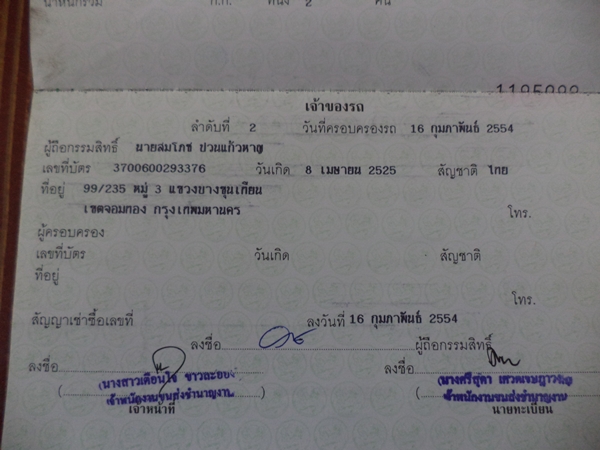 เจ้าของรถ
ลำดับที่ 2 วันที่ครอบครองรถ 16 กุมภาพันธ์ 2554
ผู้ถือกรรมสิทธิ์ นายสมโภช
เลขที่บัตร 3700600293376 วันเกิด 8 เมษายน 2525 สัญชาติ ไทย
ที่อยู่ 99/235 หมู่ 3 แขวงบางขุนเทียน
เขตจอมทอง กรุงเทพมหานคร โทร.
ผู้ครอบครอง
เลขที่บัตร วันเกิด สัญชาติ
ที่อยู่
โทร.
สัญญาเช่าซื้อเลขที่ ลงวันที่ 16 กุมภาพันธ์ 2554
ลงชื่อ ผู้ถือกรรมสิทธิ์
ลงชื่อ ลงชื่อ
(นางสาวเตือนใจ (นางศรีสุดา
เจ้าพนักงานขนส่งชำนาญงาน เจ้าพนักงานขนส่งชำนาญงาน
เจ้าหน้าที่ นายทะเบียน